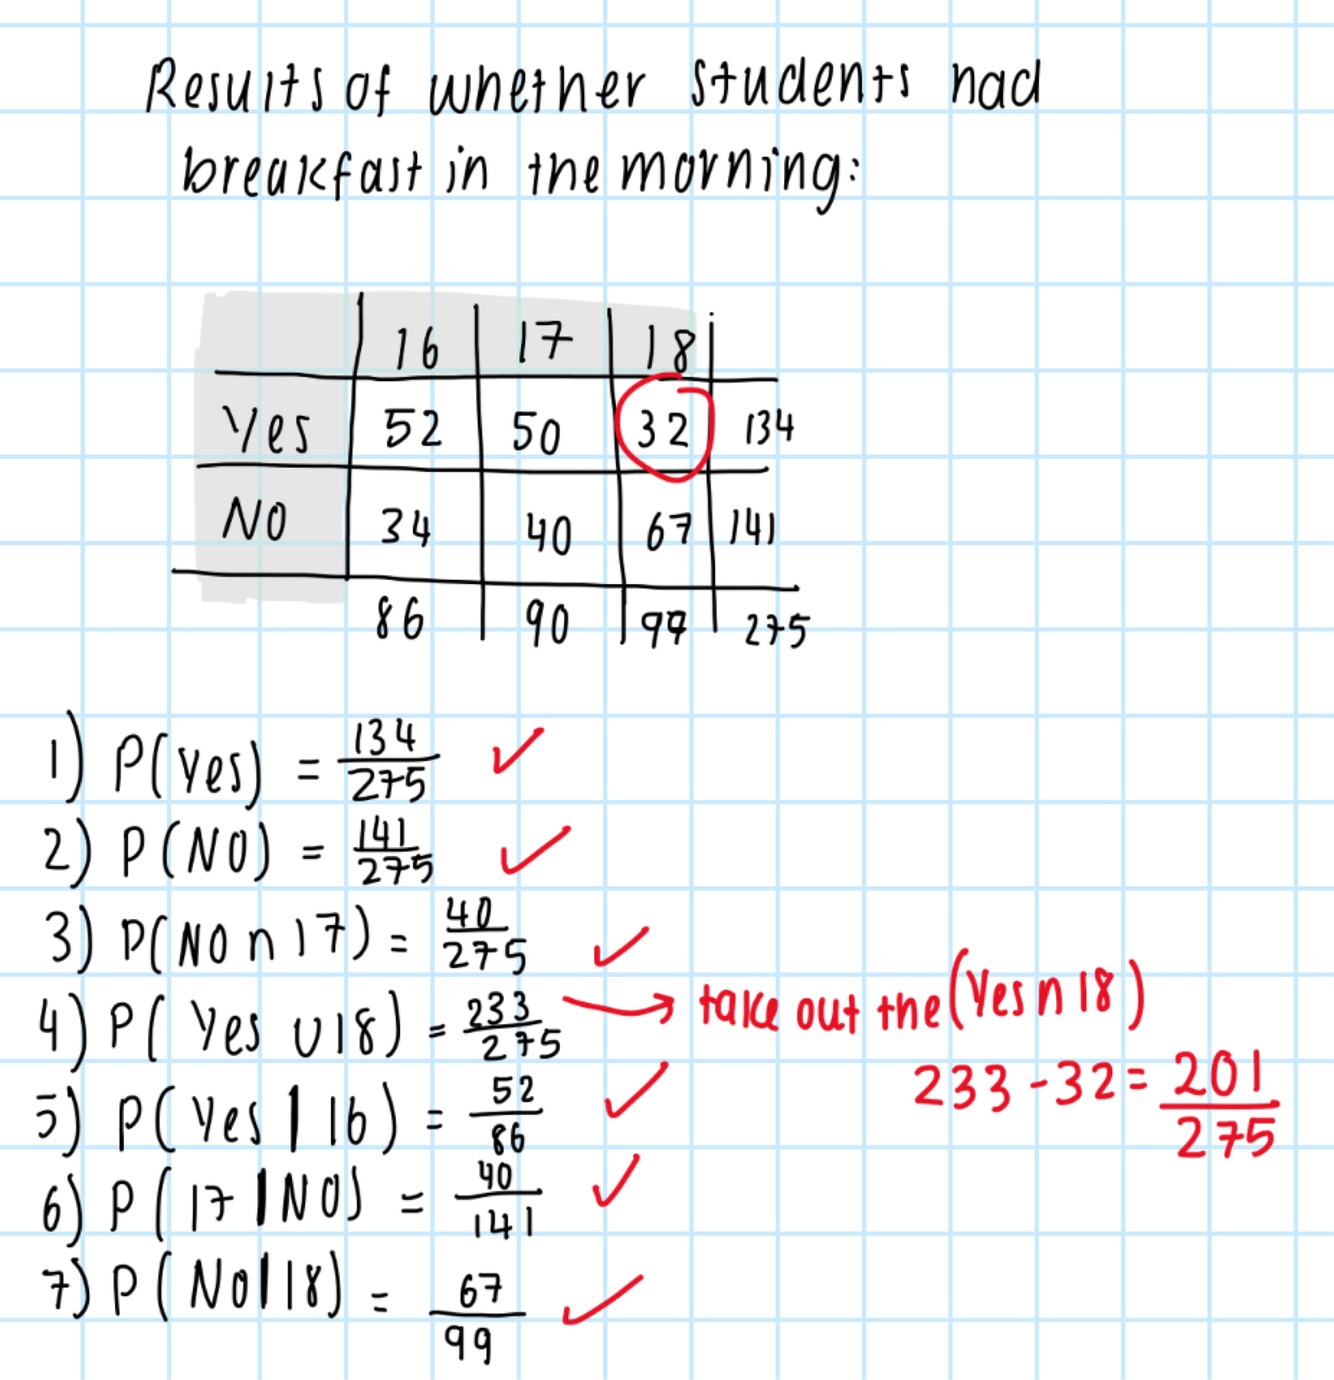 Results of whether students had
breakfast in the morning:
16 17 18
Yes 52 50 32 134
NO 34 40 67 141
86 90 99 275
1) P(Yes) = 134/275 ✓
2) P(NO) = 141/275 ✓
3) P(NO ∩ 17) = 40/275 ✓
4) P(Yes ∪ 18) = 233/275 → take out the (Yes ∩ 18)
233 - 32 = 201/275
5) P(Yes | 16) = 52/86 ✓
6) P(17 | NO) = 40/141 ✓
7) P(No | 18) = 67/99 ✓